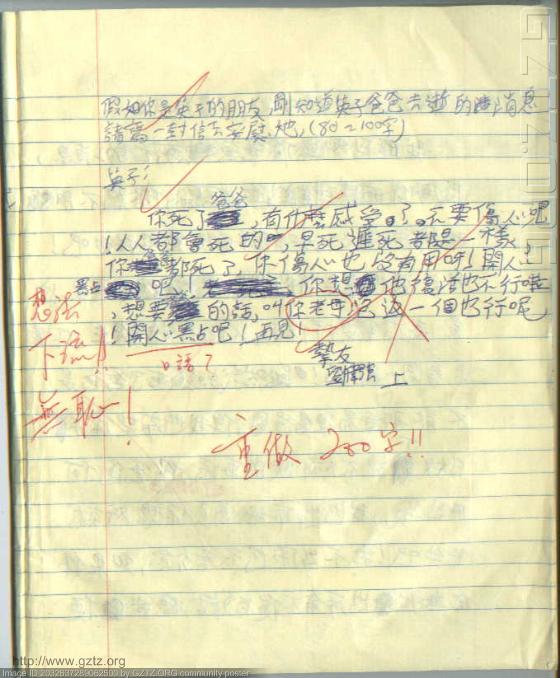 假如你是英子的朋友,剛知道英子爸爸去逝的消息
請寫一封信去安慰她,(80~100字)
英子:
爸爸
你死了,有什麼感受。了。不要傷心吧
!人人都會死的,早死遲死都是一樣,
你都死了,你傷心也沒有用呀!開心
黑占吧!你想他復活也不行啦
,想要的話,叫你老母泡返一個也行呢
!開心黑占吧!再見!
摯友
上
想法
下流!!
無恥!
口語?
重做 200字!!
http://www.gztz.org
Image ID 2032637289062500 by GZTZ.ORG community poster
GZTZ.ORG